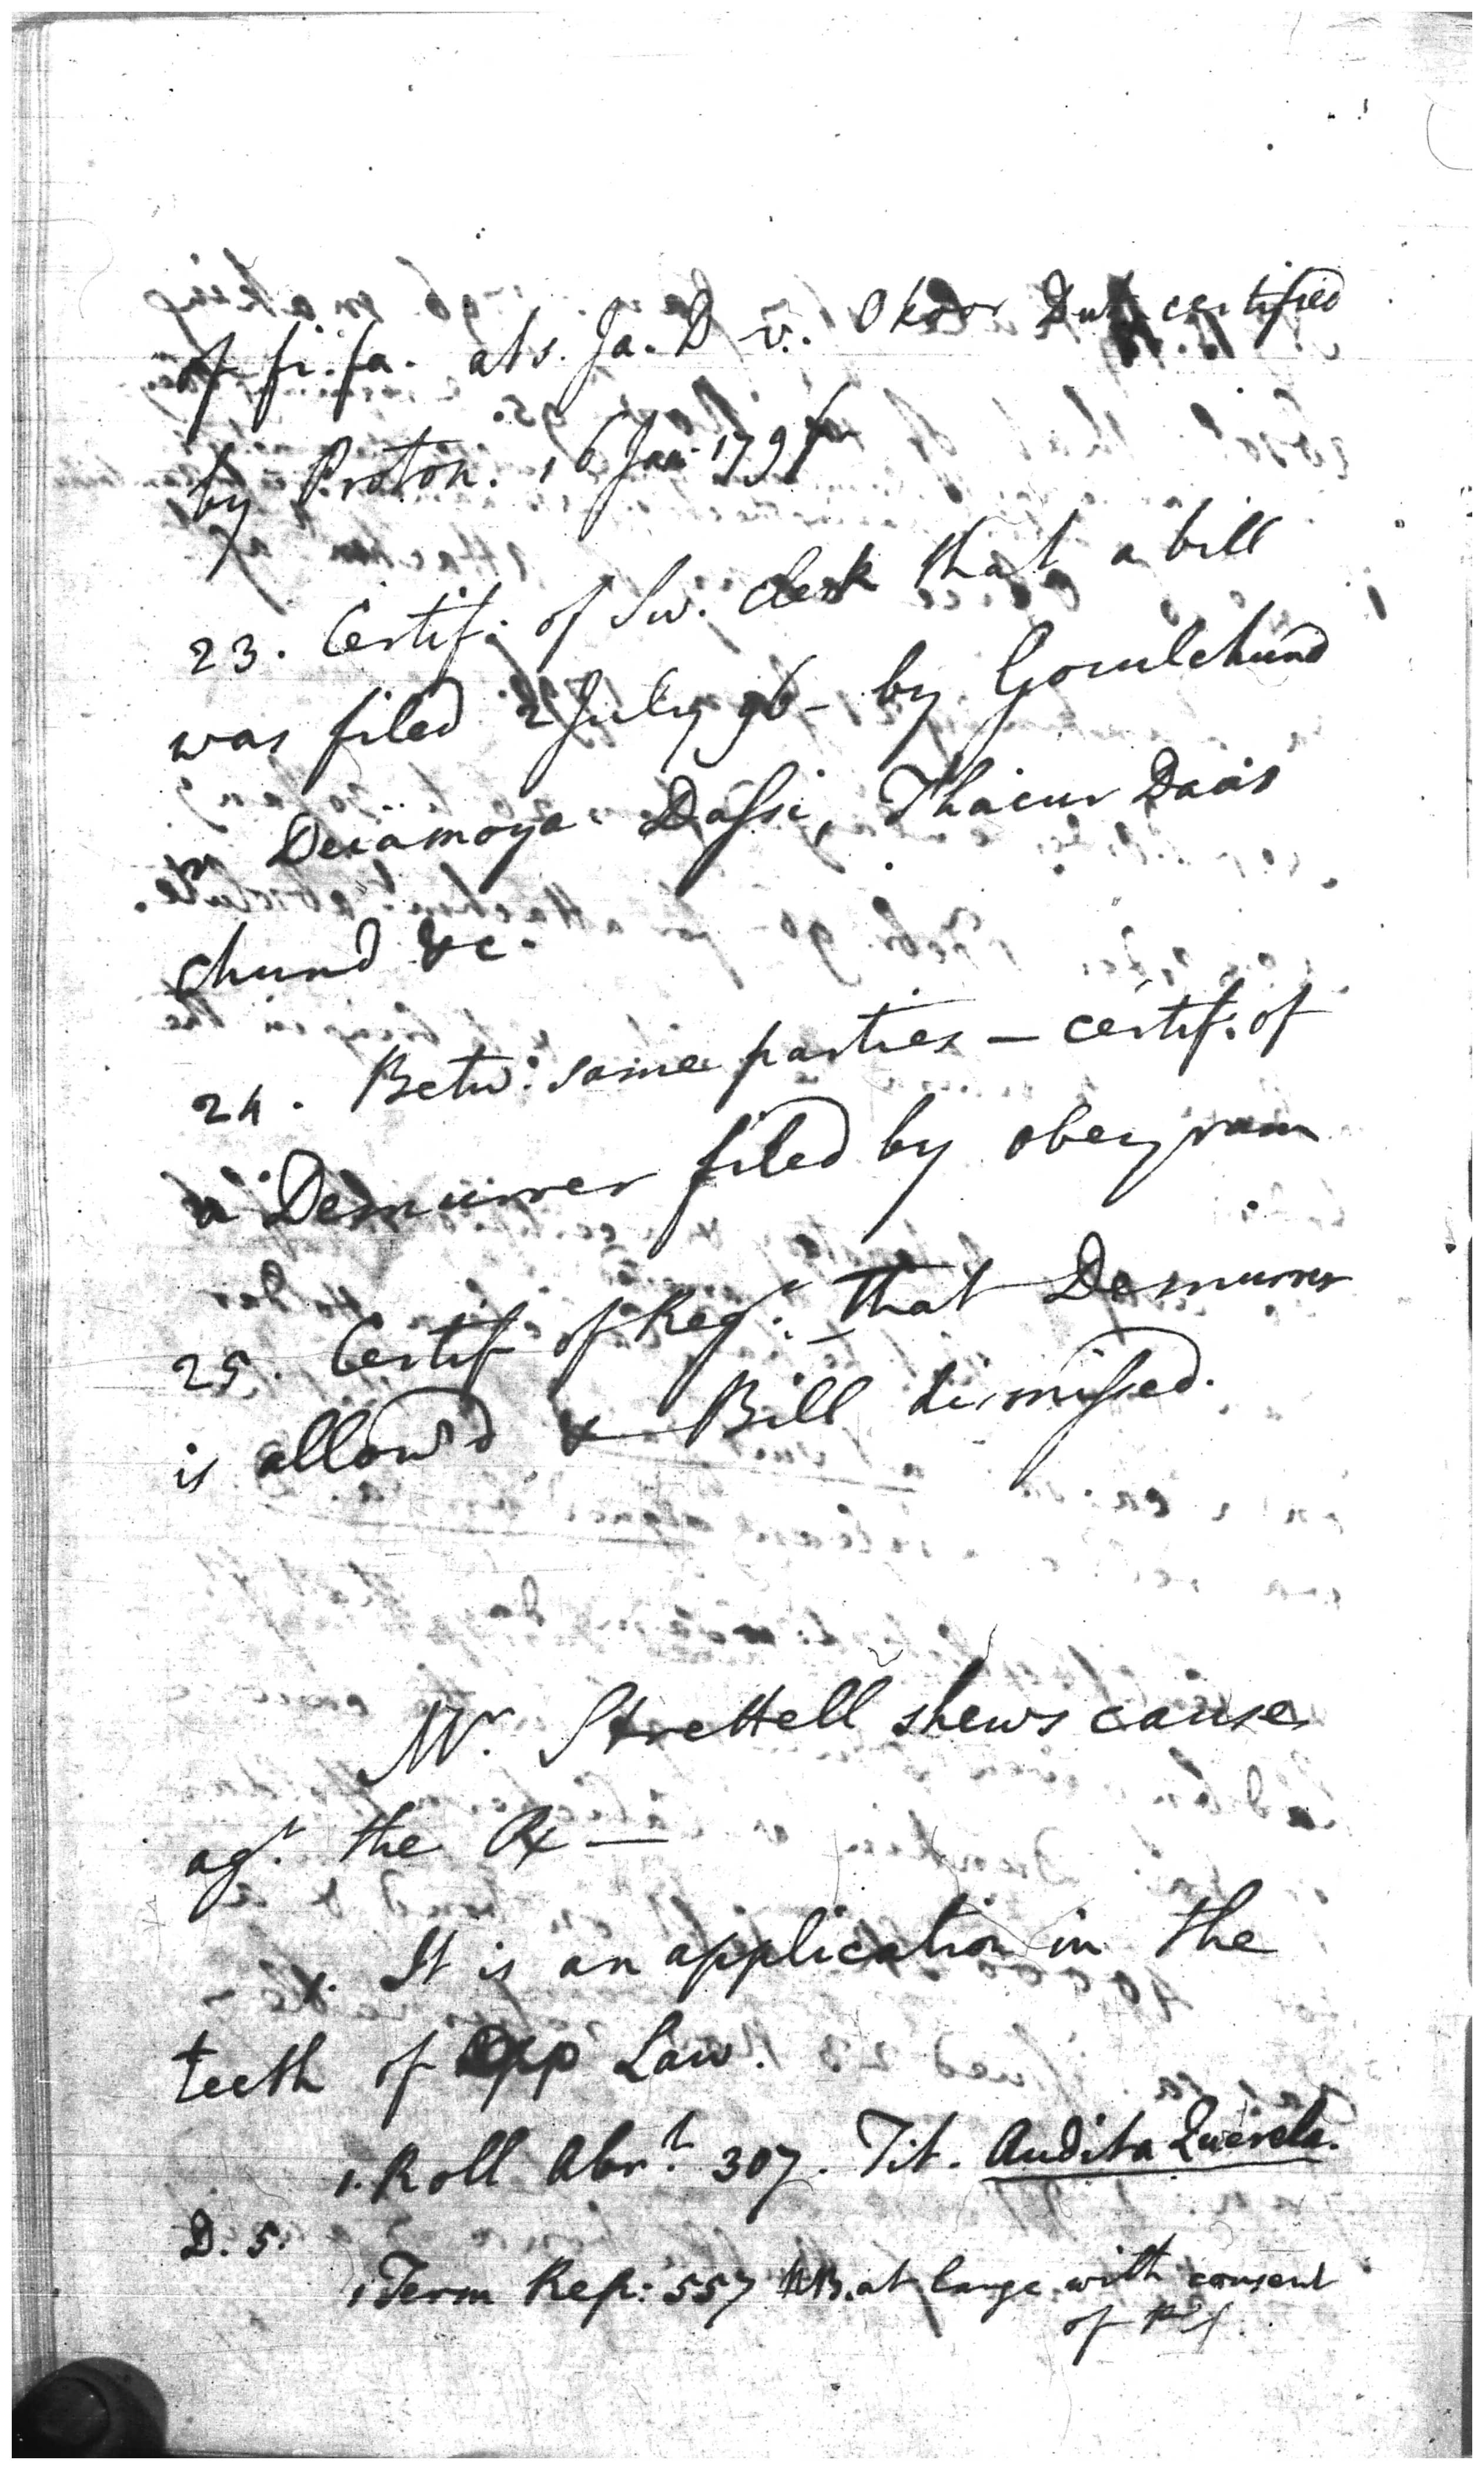 of fi. fa. ats. Ja. D v. Okoor Dutt certified
by Proton. 16 Jan 1797
23. Certif. of Sw. Clerk that a bill
was filed 2 July 96 - by Goculchund
Deiamoya Dassi, Thacur Daas
chund &c.
24. Betw. same parties — certif. of
a Demurrer filed by obeyram
25. Certif of Regr. that Demurrer
is allow'd & Bill dismissed.
Mr. Strettell shews cause
agt. the R —
1. It is an application in the
teeth of Law.
1. Roll Abrt. 307. Tit. Audita Querela.
D. 5.
1 Term Rep: 557 at large with consent
of Pl.